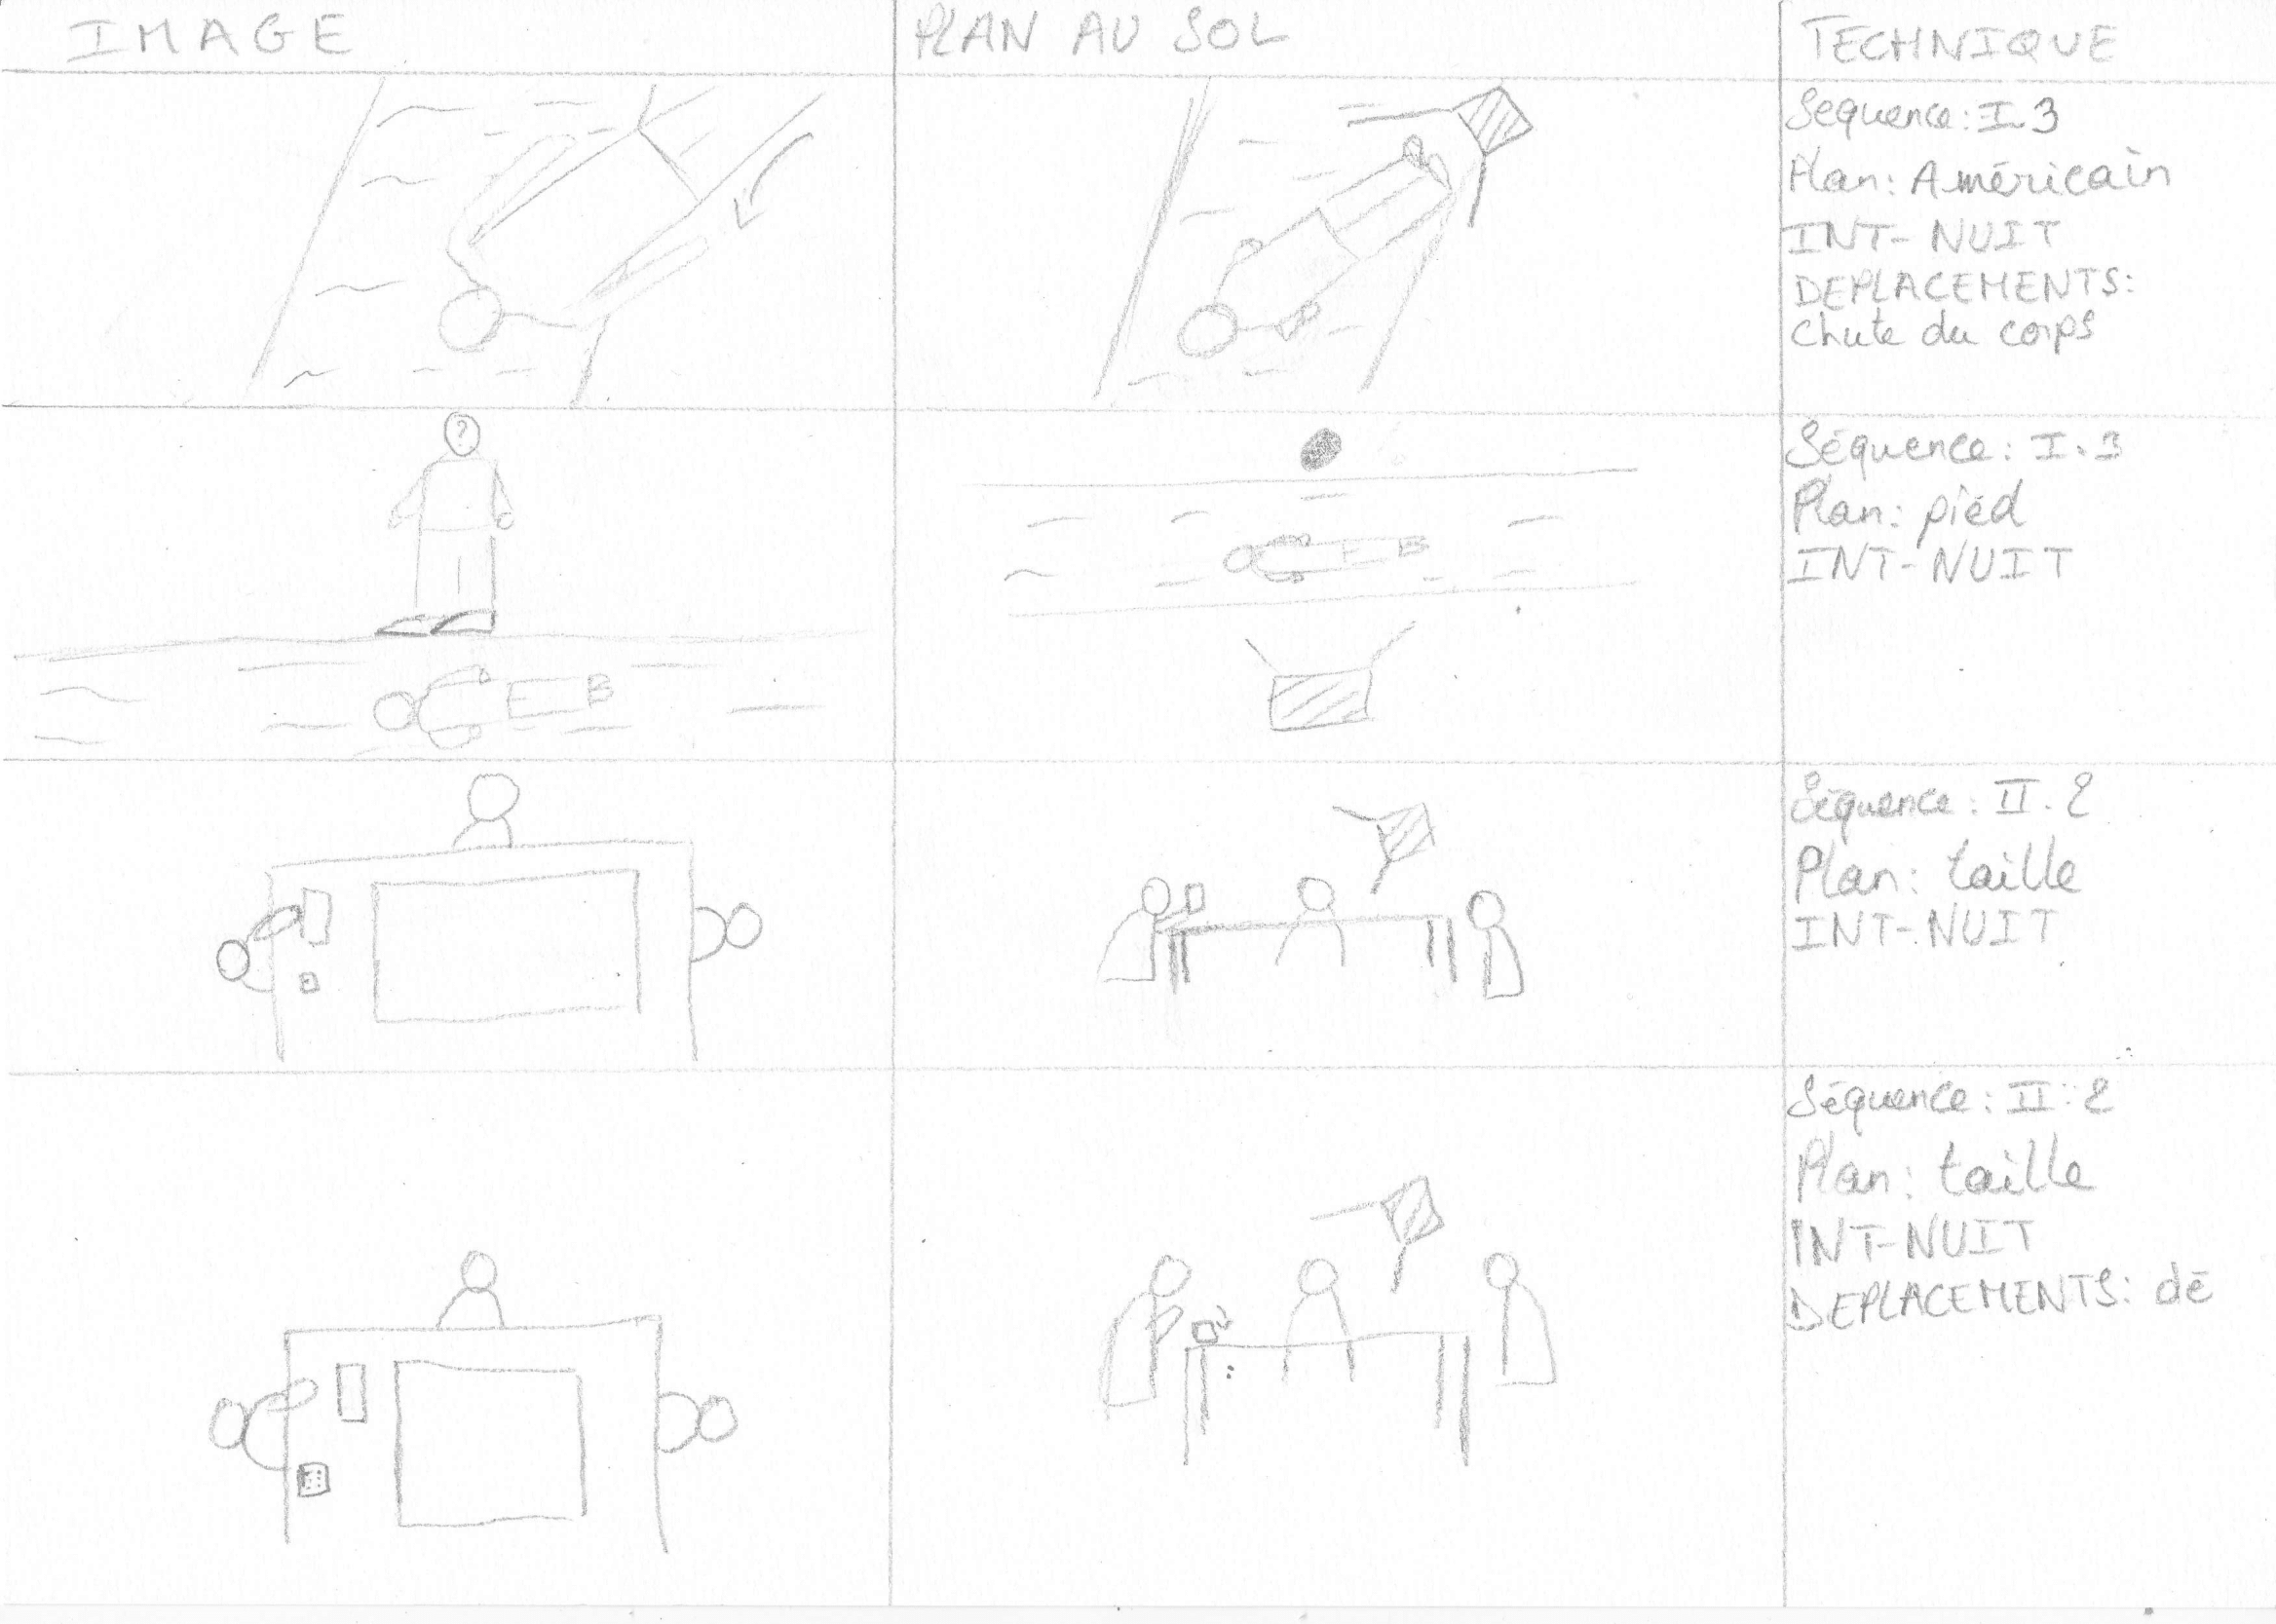 IMAGE
PLAN AU SOL
TECHNIQUE
Séquence: I.3
Plan: Américain
INT-NUIT
DEPLACEMENTS:
chute du corps
?
Séquence: I.3
Plan: pied
INT-NUIT
Séquence: II.2
Plan: taille
INT-NUIT
Séquence: II.2
Plan: taille
INT-NUIT
DEPLACEMENTS: dé